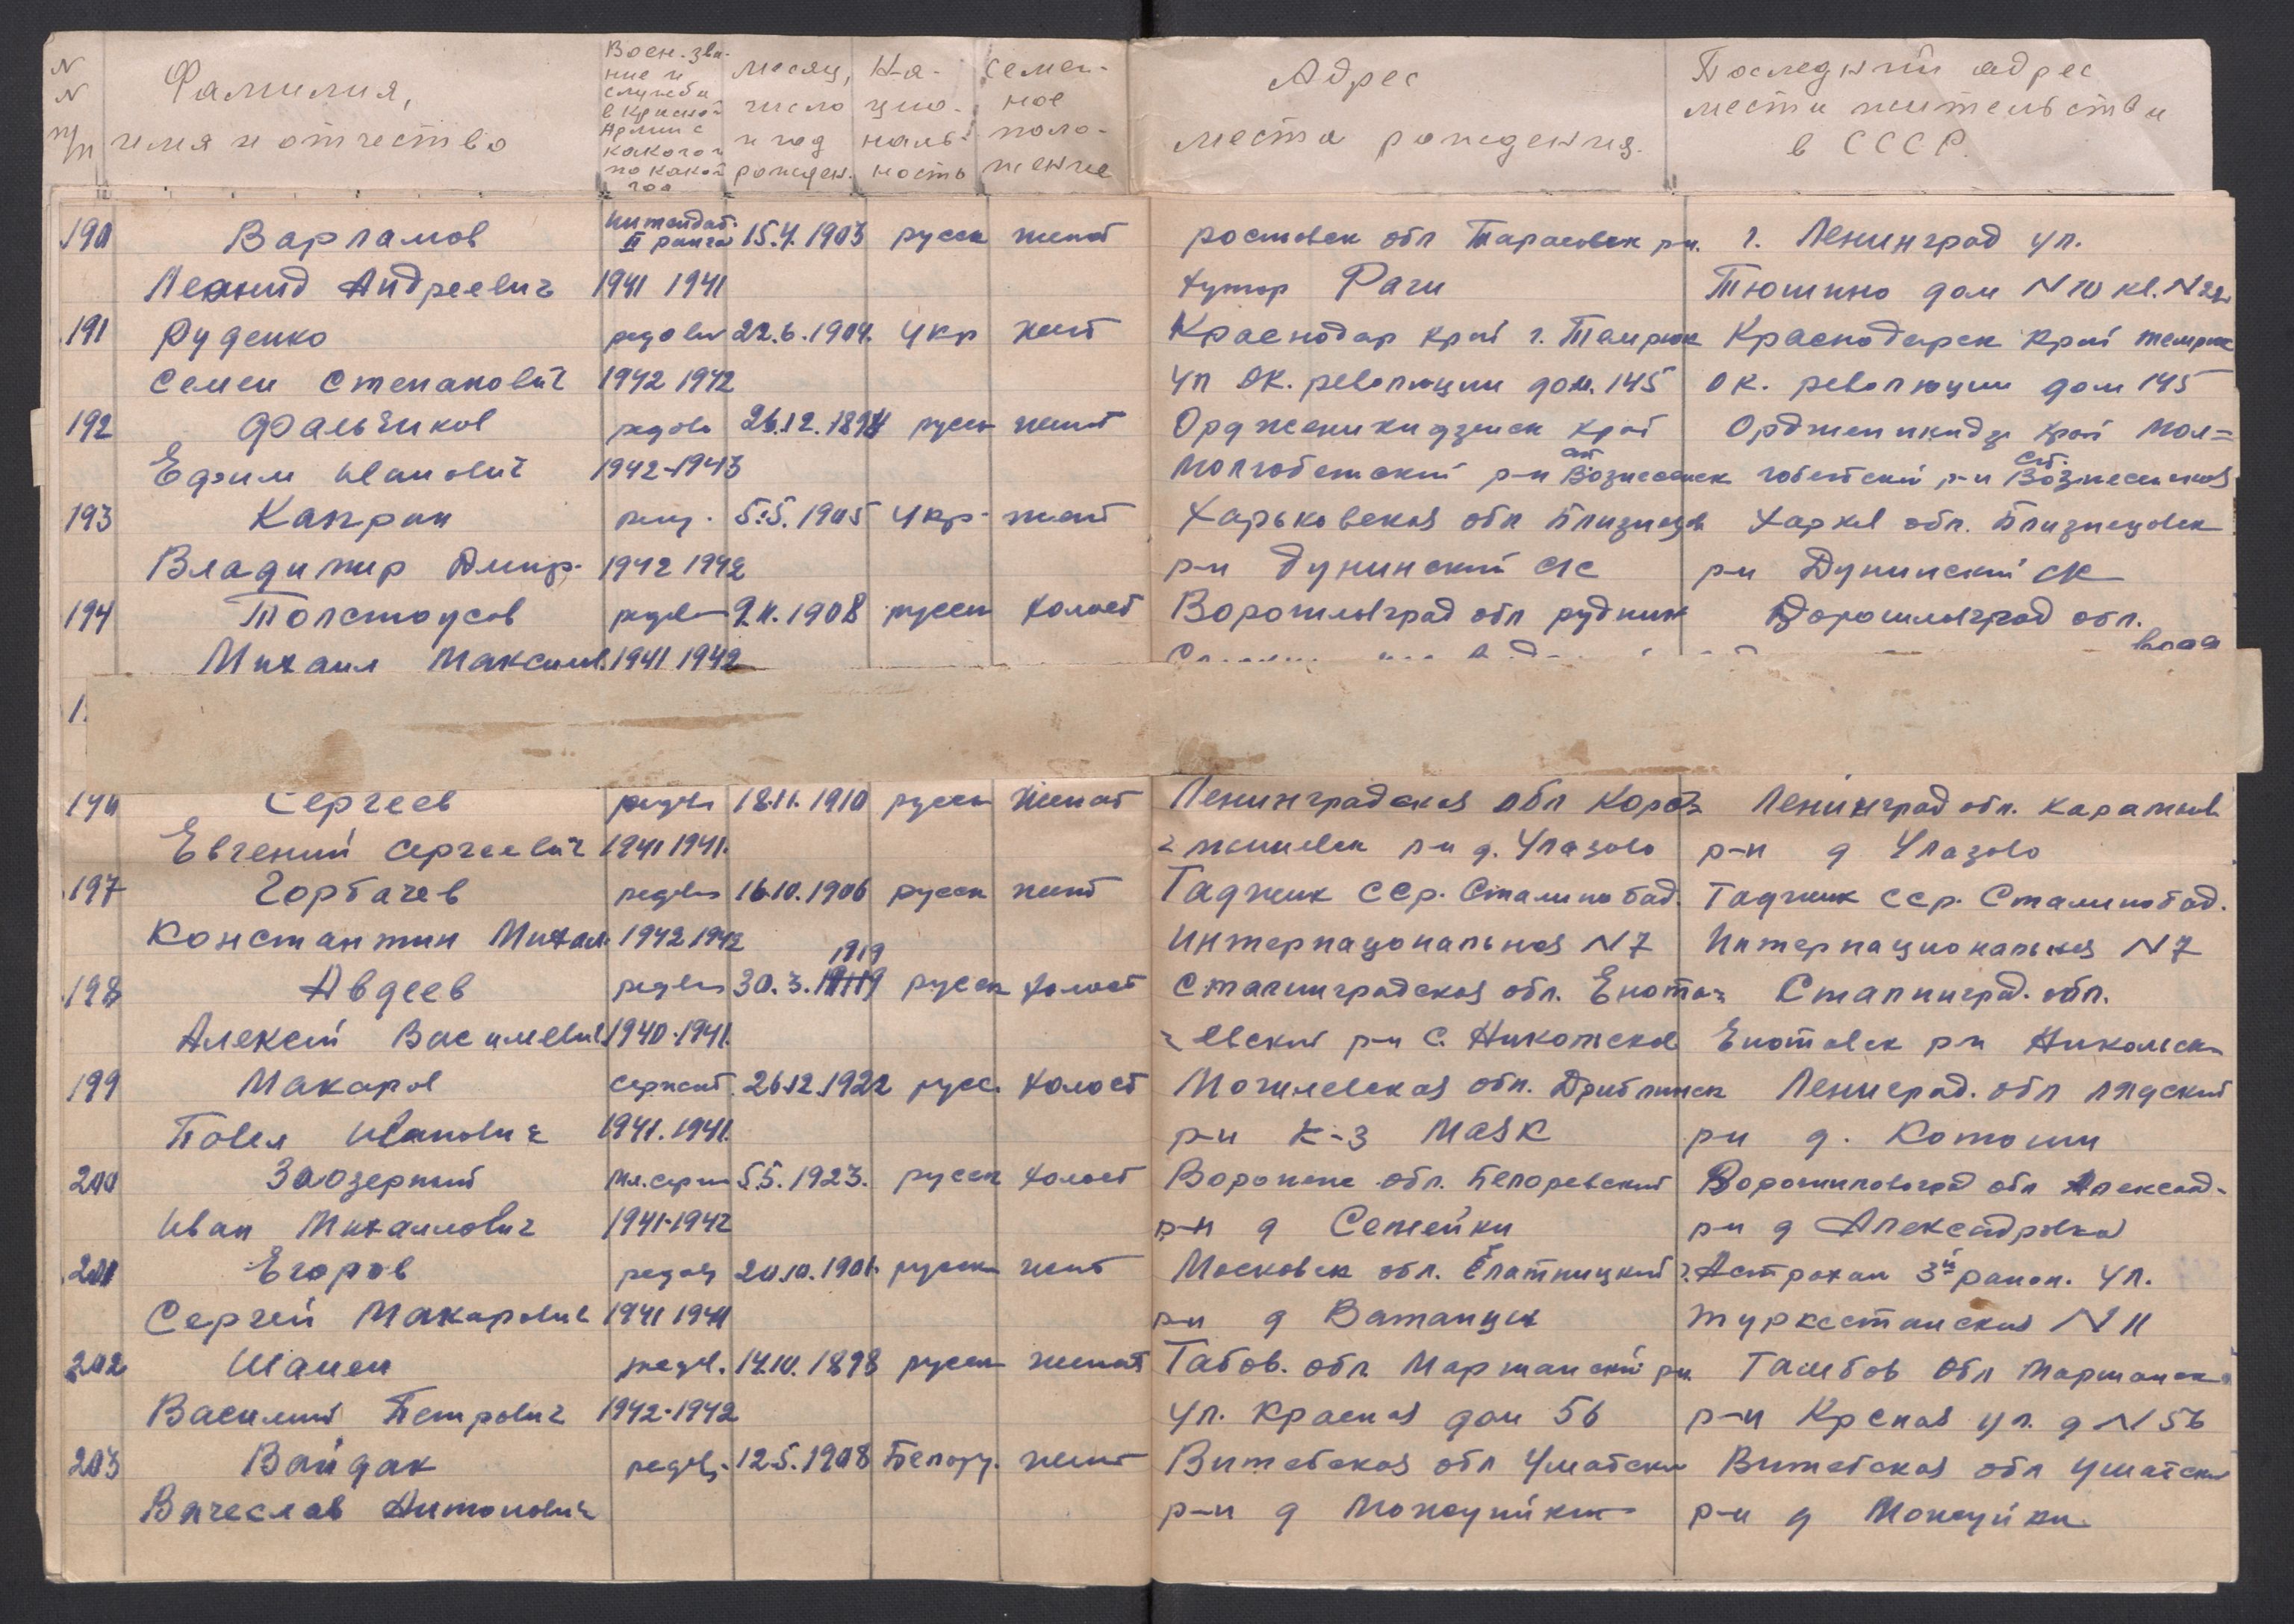 N N п/п
Фамилия, имя и отчество
Воен. звание и служба в Красной Армии с какого и по какой год
месяц, число и год рожден.
На-цио-наль-ность
Семей-ное поло-жение
Адрес места рождения.
Последний адрес места жительства в СССР.
190 Варламов интендат. II ранга 15.4.1903 русск женат ростовск обл Тарасовск р-н. г. Ленинград ул.
Леонид Андреевич 1941 1941 хутор Раги Тюшино дом N 10 кв. N
191 Руденко рядов 22.6.1904. Укр женат Краснодар край г. Темрюк Краснодарск край темрюк
Семен Степанович 1942 1942 ул Ок. революции дом. 145 ок. революции дом 145
192 Фальчиков рядов русск женат Орджоникидзенск край Орджоникидз край Мол=
Ефим Иванович 1942-1943 Молгобетский р-н ст Вознесенск гобетский р-н ст. Вознесенская
193 Капран ряд. 5.5.1905 Укр. женат Харьковская обл Близнецов Харков обл. Близнецовск
Владимир Дмитр. 1942 1942 р-н Дунинский с/с р-н Дунинский с/с
194 Толстоусов рядов 1908 русск холост Ворошловград обл рудник Ворошловград обл.
Михаил Максимов. 1941 1942
Сергеев рядов 18.11.1910 русск Женат Ленинградская обл Ленинград обл.
Евгений Сергеевич 1941 1941. р-н д. Улазово р-н д Улазово
197 Горбачев рядов 16.10.1906 русск женат Таджик ССр. Сталинобад. Таджик ССр. Сталинобад.
Константин Михал. 1942 1942 Интернацональная N 7 Интернациональная N 7
198 Авдеев рядов 30.3. 1919 русск холост Сталинградская обл. Енота= Сталинград. обл.
Алексей Василевич 1940-1941. =евский р-н С. Никольское Енотовск р-н Никольск
199 Макаров сержант. 26.12.1922 русс. холост Могилевская обл. Дриблинск Ленинград. обл лядский
Повел Иванович 1941. 1941. р-н к-з Маяк р-н д. Котоши
200 Заозерный мл. серж 5.5.1923. русск холост Воронеже обл. Белоревский Ворошиловоград обл Александ-
Иван Михаилович 1941-1942 р-н д Семейки р-н д Александровка
201 Егоров рядов 20.10.1901. русск женат Московск обл. Елатницкий г. Астрохан 3й район. Ул.
Сергей Макарович 1941 1941 р-н д Ватанцы туркестанская N 11
202 Шанен рядов. 14.10.1898 русск женат Табов. обл. Маршанский р-н. Тамбов Обл Маршанск
Василий Петрович 1942-1942 ул. Красная дом 56 р-н Крсная ул. д N 56
203 Вайдак рядов. 12.5.1908 Белору. женат Витебская обл Ушатски Витебская обл Ушатски
Вячеслав Антонович р-н д р-н д